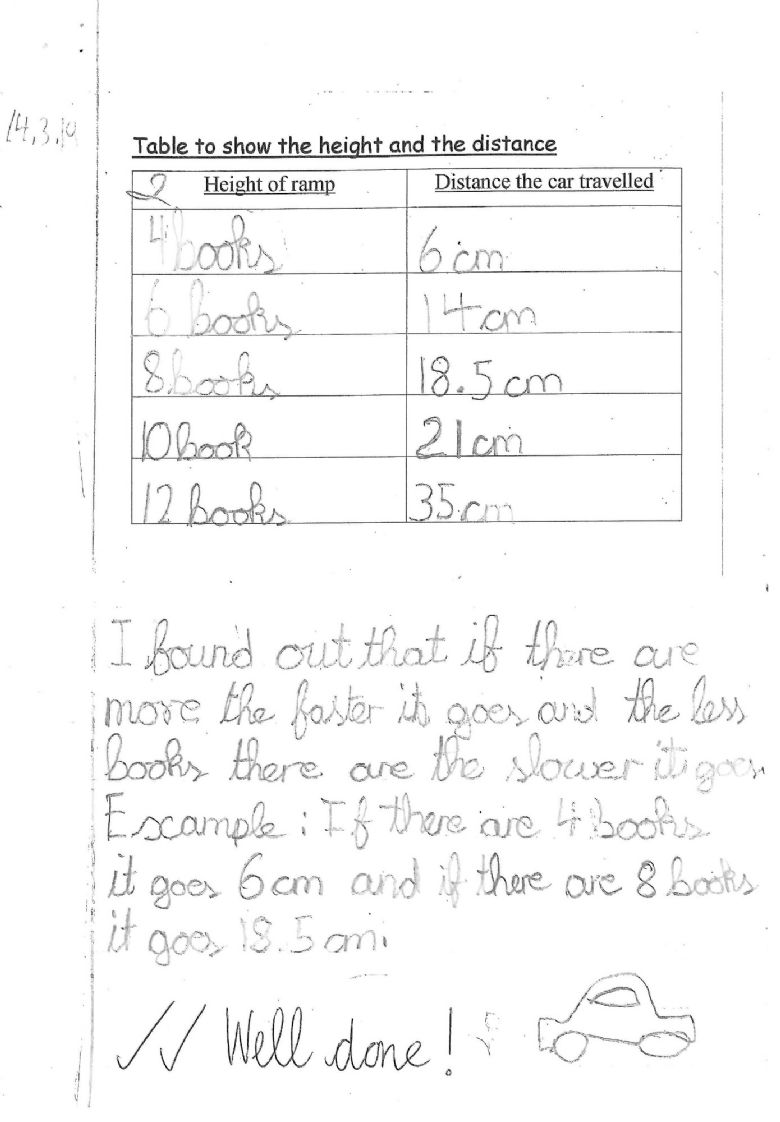 14.3.19
Table to show the height and the distance
2 Height of ramp Distance the car travelled
4 books 6 cm
6 books 14 cm
8 books 18.5 cm
10 book 21 cm
12 books 35 cm
I found out that if there are
more the faster it goes and the less
books there are the slower it goes.
Escample : If there are 4 books
it goes 6 cm and if there are 8 books
it goes 18.5 cm.
Well done!